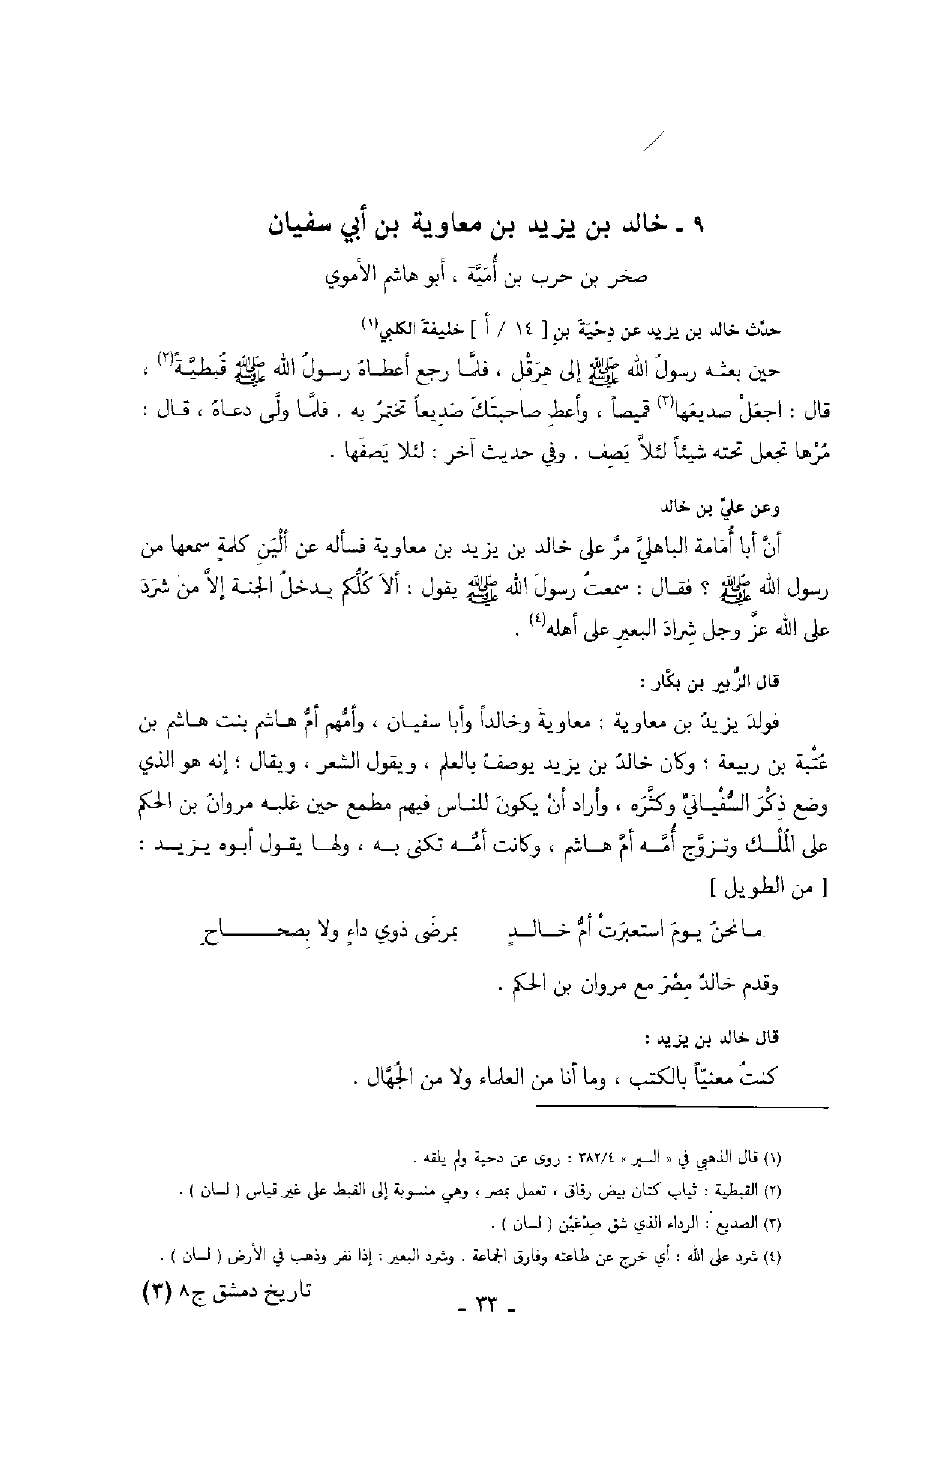 ٩ ـ خالد بن يزيد بن معاوية بن أبي سفيان
صخر بن حرب بن أُمَيَّة ، أبو هاشم الأموي
حدّث خالد بن يزيد عن دِحْيَةَ بنِ [ ١٤ / أ ] خليفةَ الكلبي(١)
حين بعثـه رسولُ الله ﷺ إلى هِرَقْل ، فلمَّـا رجع أعطـاهُ رسـولُ الله ﷺ قُبـطيَّـةً(٢) ،
قال : اجعَلْ صديعَها(٣) قميصاً ، وأعطِ صاحبتَكَ صَديعاً تختمرُ به . فلمَّـا ولَّى دعـاهُ ، قـال :
مُرْها تجعل تحته شيئاً لئلاَّ يَصِف . وفي حديث آخر : لئلا يَصفَها .
وعن عليِّ بن خالد
أنَّ أبا أُمَامة الباهليَّ مرَّ على خالد بن يزيد بن معاوية فسأله عن ألْيَنِ كلمةٍ سمعها من
رسول الله ﷺ ؟ فقـال : سمعتُ رسولَ الله ﷺ يقول : ألاَ كُلُّكم يـدخلُ الجنـة إلاَّ منْ شرَدَ
على الله عزَّ وجل شِرادَ البعيرِ على أهله(٤) .
قال الزُّبير بن بكّار :
فولدَ يزيدُ بن معاوية : معاويةَ وخالداً وأبا سفيـان ، وأمُّهم أمُّ هـاشم بنت هـاشم بن
عُتْبة بن ربيعة ؛ وكان خالدُ بن يزيد يوصفُ بالعلم ، ويقول الشعر ، ويقال : إنه هو الذي
وضع ذِكْرَ السُّفْيـانيِّ وكثَّرَه ، وأراد أنْ يكونَ للنـاس فيهم مطمع حين غلبـه مروانُ بن الحكم
على المُلْـك وتـزوَّج أُمَّـه أمَّ هـاشم ، وكانت أمُّـه تكنى بـه ، ولهـا يقـول أبـوه يـزيـد :
[ من الطويل ]
مـا نحنُ يـومَ استعبرَتْ أمُّ خـالـدٍ بمرضَى ذوي داءٍ ولا بِصحـــاحِ
وقدم خالدُ مِصْرَ مع مروان بن الحكم .
قال خالد بن يزيد :
كنتُ معنيّاً بالكتب ، وما أنا من العلماء ولا من الجُهَّال .
(١) قال الذهبي في « السير » ٣٨٢/٤ : روى عن دحية ولم يلقه .
(٢) القبطية : ثياب كتان بيض رقاق ، تعمل بمصر ، وهي منسوبة إلى القبط على غير قياس ( لسان ) .
(٣) الصديع : الرداء الذي شق صِدْعَيْن ( لسان ) .
(٤) شرد على الله : أي خرج عن طاعته وفارق الجماعة . وشرد البعير : إذا نفر وذهب في الأرض ( لسان ) .
ـ ٣٣ ـ تاريخ دمشق ج٨ (٣)